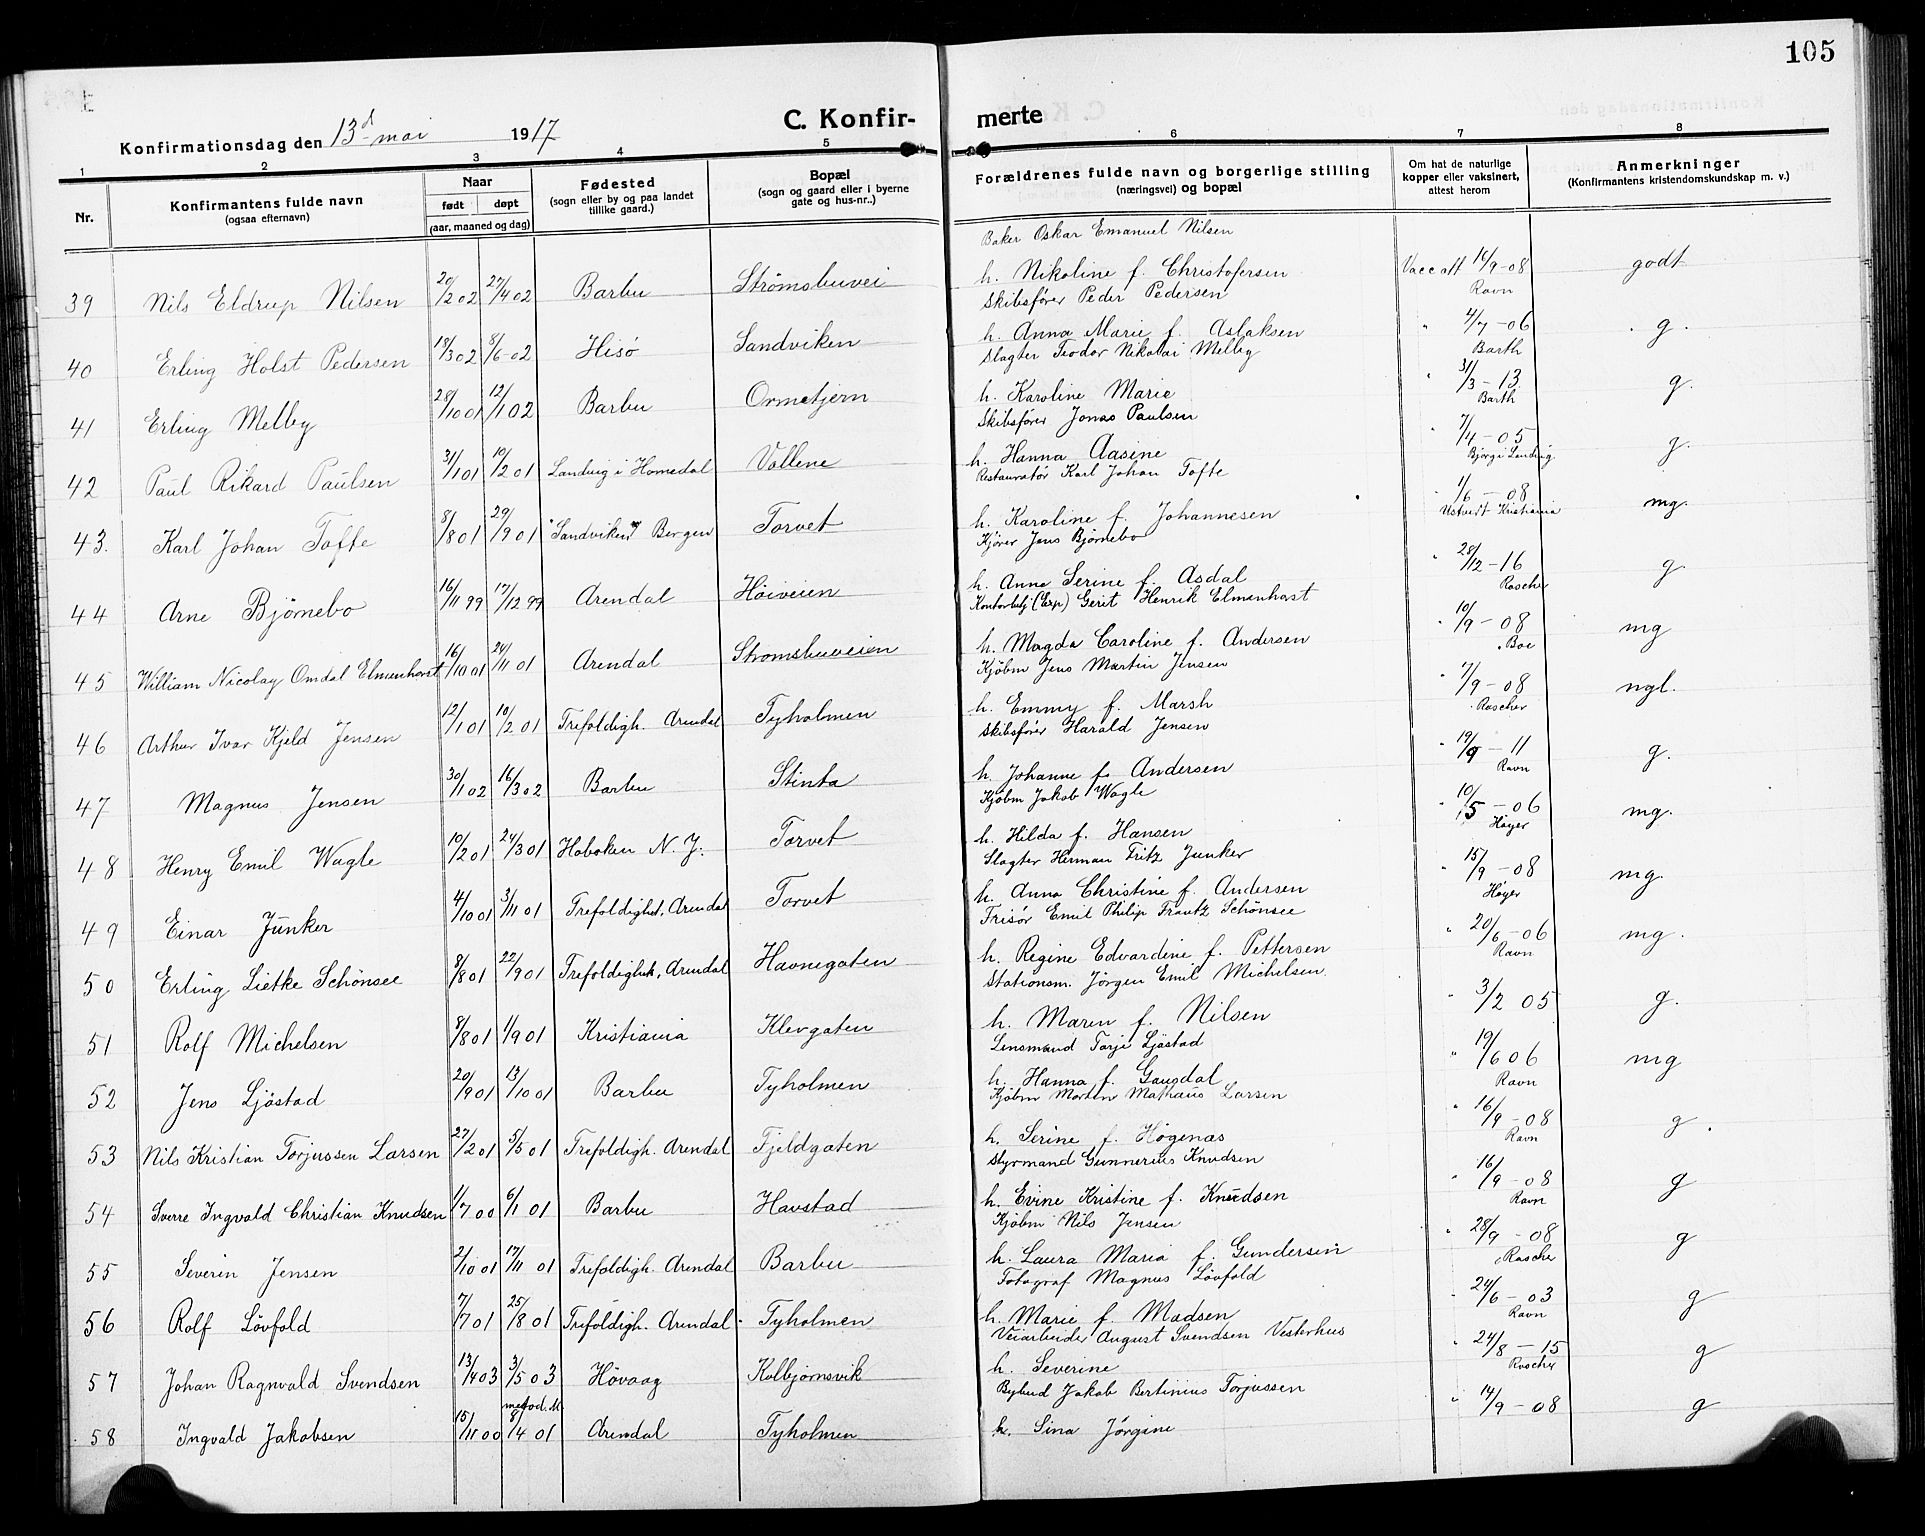 105
Konfirmationsdag den 13d mai 1917
C. Konfir-
merte
1 2 3 4 5 6 7 8
Nr.
Konfirmantens fulde navn
(ogsaa efternavn)
Naar
født døpt
(aar, maaned og dag)
Fødested
(sogn eller by og paa landet
tillike gaard.)
Bopæl
(sogn og gaard eller i byerne
gate og hus-nr..)
Forældrenes fulde navn og borgerlige stilling
(næringsvei) og bopæl
Om hat de naturlige
kopper eller vaksinert,
attest herom
Anmerkninger
(Konfirmantens kristendomskundskap m. v.)
Baker Oskar Emanuel Nilsen
39 Nils Eldrup Nilsen 20/2 02 27/4 02 Barbu Strømsbuvei h. Nikoline f. Christofersen Vacc att 16/9-08 Ravn godt
Skibsfører Peder Pedersen
40 Erling Holst Pedersen 19/3 02 8/6-02 Hisø Sandviken h. Anna Marie f. Aslaksen " 4/7-06 Barth g.
Slagter Teodor Nikolai Melby
41 Erling Melby 28/10 01 12/1 02 Barbu Ormetjern h. Karoline Marie " 31/3-13 Barth g.
Skibsfører Jonas Paulsen
42 Paul Rikard Paulsen 31/1 01 10/2 01 Landvig i Homedal Vollene h. Hanna Aasine " 7/4-05 g.
Restauratør Karl Johan Tofte
43. Karl Johan Tofte 8/8 01 29/9 01 Sandviken, Bergen Torvet h. Karoline f. Johannesen " 1/6-08 Ustvedt Kristiania mg.
Kjører Jens Bjørnebo
44 Arne Bjørnebo 16/11 99 17/12 99 Arendal Høiveien h. Anne Serine f. Asdal " 28/12-16 Rascher g
Kontorbetj (Exp) Gerit Henrik Elmenhorst
45 William Nicolay Omdal Elmenhorst 16/10 01 24/11 01 Arendal Strømsbuveien h. Magda Caroline f. Andersen " 10/9-08 Boe mg
Kjøbm Jens Martin Jensen
46 Arthur Ivar Kjeld Jensen 12/1 01 10/2 01 Trefoldigh. Arendal Tyholmen h. Emmy f. Marsh " 7/9-08 Rascher ngl.
Skibsfører Harald Jensen
47 Magnus Jensen 30/1 02 16/3 02 Barbu Stinta h. Johanne f. Andersen " 19/9-11 Ravn g.
Kjøbm Jakob Wagle
48 Henry Emil Wagle 10/2 01 24/3 01 Hoboken N. J. Torvet h. Hilda f. Hansen " 10/5-06 Høyer mg.
Slagter Herman Fritz Junker
49 Einar Junker 4/10 01 3/11 01 Trefoldighet, Arendal Torvet h. Anna Christine f. Andersen " 15/9-08 Høyer mg.
Frisør Emil Philip Frantz Schönsee
50 Erling Lietke Schönsee 8/8 01 22/9 01 Trefoldighet, Arendal Havnegaten h. Regine Edvardine f. Pettersen " 20/6-06 Ravn mg.
Stationsm. Jörgen Emil Michelsen
51 Rolf Michelsen 8/8 01 1/9 01 Kristiania Klevgaten h. Maren f. Nilsen " 3/2 05 g.
Lensmand Torje Ljøstad
52 Jens Ljøstad 20/9 01 13/10 01 Barbu Tyholmen h. Hanna f. Gausdal " 19/6 06 Ravn mg
Kjøbm Morten Mathæus Larsen
53 Nils Kristian Torjussen Larsen 27/2 01 5/5 01 Trefoldigh. Arendal Fjeldgaten h. Serine f. Høgenæs " 16/9-08 Ravn g.
Styrmand Gunnerius Knudsen
54 Sverre Ingvald Christian Knudsen 1/7 00 6/1 01 Barbu Havstad h. Evine Kristine f. Knudsen " 16/9-08 Ravn g
Kjøbm Nils Jensen
55 Severin Jensen 2/10 01 17/11 01 Trefoldigh. Arendal Barbu h. Laura Maria f. Gundersen " 28/9-08 Rascher g
Fotograf Magnus Løvfold
56 Rolf Løvfold 7/7 01 25/8 01 Trefoldigh. Arendal Tyholmen h. Marie f. Madsen " 24/6-03 Ravn g
Veiarbeider August Svendsen Vesterhus
57 Johan Ragnvald Svendsen 13/4 03 3/5 03 Høvaag Kolbjørnsvik h. Severine " 24/8-15 Rascher g
Bybud Jakob Bertinius Torjussen
58 Ingvald Jakobsen 15/11 00 metod. M. 8/4 01 Arendal Tyholmen h. Sina Jørgine " 14/9-08 g